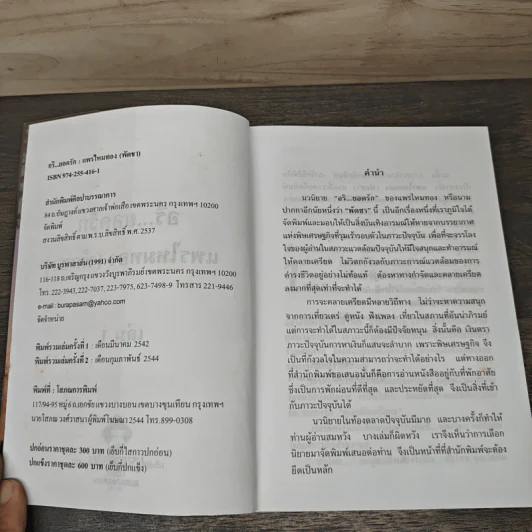 อริ...ยอดรัก : แพรไหมทอง (พัดชา)
ISBN 974-255-416-1
สำนักพิมพ์ศิลปาบรรณาคาร
84 ถ.อัษฎางค์ แขวงศาลเจ้าพ่อเสือ เขตพระนคร กรุงเทพฯ 10200
จัดพิมพ์
สงวนลิขสิทธิ์ ตาม พ.ร.บ.ลิขสิทธิ์ พ.ศ. 2537
บริษัท บูรพาสาส์น (1991) จำกัด
116-118 ถ.เจริญกรุง แขวงวังบูรพาภิรมย์ เขตพระนคร กรุงเทพฯ 10200
โทร. 222-3943, 222-7037, 223-7975, 623-7498-9 โทรสาร 221-9446
e-mail : burapasarn@yahoo.com
จัดจำหน่าย
พิมพ์รวมเล่มครั้งที่ 1 : เดือนมีนาคม 2542
พิมพ์รวมเล่มครั้งที่ 2 : เดือนกุมภาพันธ์ 2544
พิมพ์ที่ : โสภณการพิมพ์
117/94-95 หมู่ 6 ถ.เอกชัย แขวงบางบอน เขตบางขุนเทียน กรุงเทพฯ
นายโสภณ วงศ์วาสนา ผู้พิมพ์โฆษณา 2544 โทร.899-0308
ปกอ่อนราคาชุดละ 300 บาท (เย็บกี่ไสกาวปกอ่อน)
ปกแข็งราคาชุดละ 600 บาท (เย็บกี่ปกแข็ง)
คำนำ
นวนิยาย "อริ...ยอดรัก" ของแพรไหมทอง หรือนาม
ปากกาอีกนัยหนึ่งว่า "พัดชา" นี้ เป็นอีกเรื่องหนึ่งที่เราภูมิใจได้
จัดพิมพ์และมอบให้เป็นสิ่งบันเทิงอารมณ์ให้หายจากบรรยากาศ
แห่งพิษเศรษฐกิจที่รุมเร้ารอบตัวในภาวะปัจจุบัน เพื่อที่จะจรรโลง
ใจของผู้อ่านในสภาวะแวดล้อมปัจจุบันให้มีใจสนุกและทำอารมณ์
ให้คลายเครียด ไม่วิตกกังวลกับภาวะการณ์แวดล้อมของการ
ดำรงชีวิตอยู่อย่างไม่ท้อแท้ ต้องหาทางกำจัดและคลายเครียด
ลงมากที่สุดเท่าที่จะทำได้
การจะคลายเครียดมีหลายวิถีทาง ไม่ว่าจะหาความสนุก
จากการเที่ยวเตร่ ดูหนัง ฟังเพลง เที่ยวในสถานที่อันน่าภิรมย์
แต่การจะทำได้ในสภาวะนี้ก็ต้องมีปัจจัยหนุน สิ่งนั้นคือ เงินตรา
ภาวะปัจจุบันการหาเงินก็แสนจะลำบาก เพราะพิษเศรษฐกิจ จึง
เป็นที่กังวลใจในความสามารถว่าจะทำได้อย่างไร แต่ทางออก
ที่สำนักพิมพ์ขอเสนอนั้นก็คือการอ่านหนังสืออยู่กับที่พักอาศัย
ซึ่งเป็นการพักผ่อนที่ดีที่สุด และประหยัดที่สุด จึงเป็นสิ่งที่เข้า
กับภาวะปัจจุบันได้
นวนิยายในท้องตลาดปัจจุบันมีมาก และบางครั้งก็ทำให้
ท่านผู้อ่านสมหวัง บางเล่มก็ผิดหวัง เราจึงเห็นว่าการเลือก
นิยายมาจัดพิมพ์เสนอต่อท่าน จึงเป็นหน้าที่ที่สำนักพิมพ์จะต้อง
ยึดเป็นหลัก